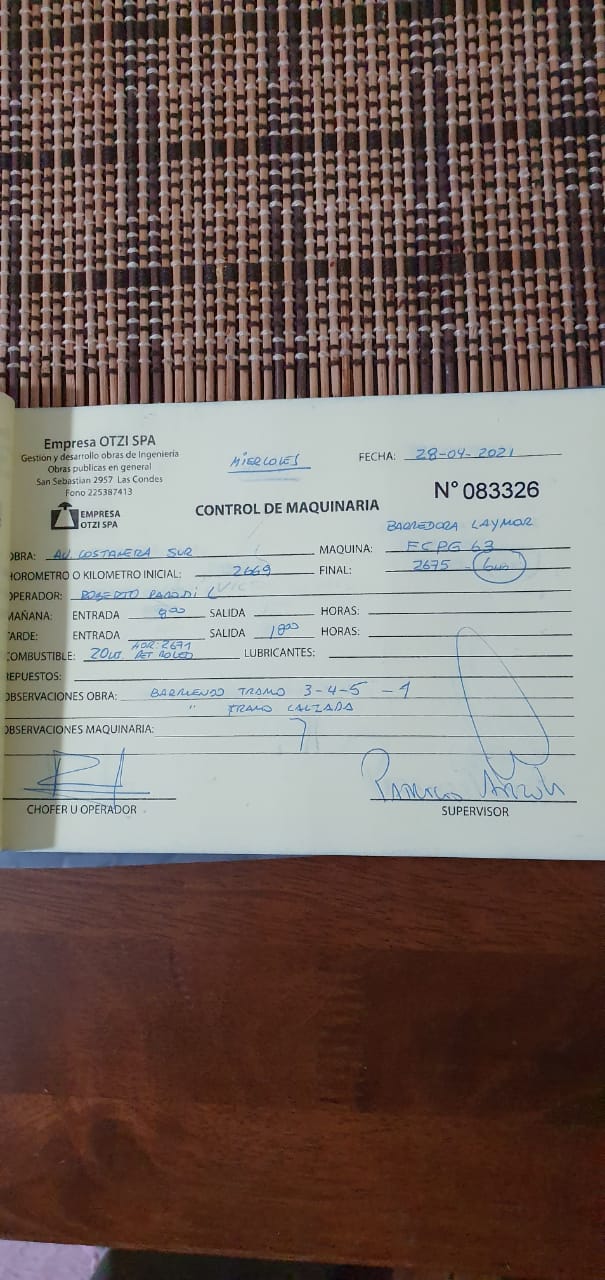 Empresa OTZI SPA
Gestión y desarrollo obras de Ingeniería
Obras publicas en general
San Sebastian 2957 Las Condes
Fono 225387413
EMPRESA
OTZI SPA
MIERCOLES
FECHA: 28-04-2021
N° 083326
CONTROL DE MAQUINARIA
BARREDORA LAYMOR
OBRA: AV. COSTANERA SUR MAQUINA: FCPG 63
HOROMETRO O KILOMETRO INICIAL: 2669 FINAL: 2675
OPERADOR: ROBERTO PARODI
MAÑANA: ENTRADA 8:00 SALIDA HORAS:
TARDE: ENTRADA SALIDA 18:00 HORAS:
HOR: 2671
COMBUSTIBLE: 20 LT. LUBRICANTES:
REPUESTOS:
OBSERVACIONES OBRA: BARRIENDO TRAMO 3-4-5 -1
" TRAMO CALZADA
OBSERVACIONES MAQUINARIA:
CHOFER U OPERADOR
SUPERVISOR